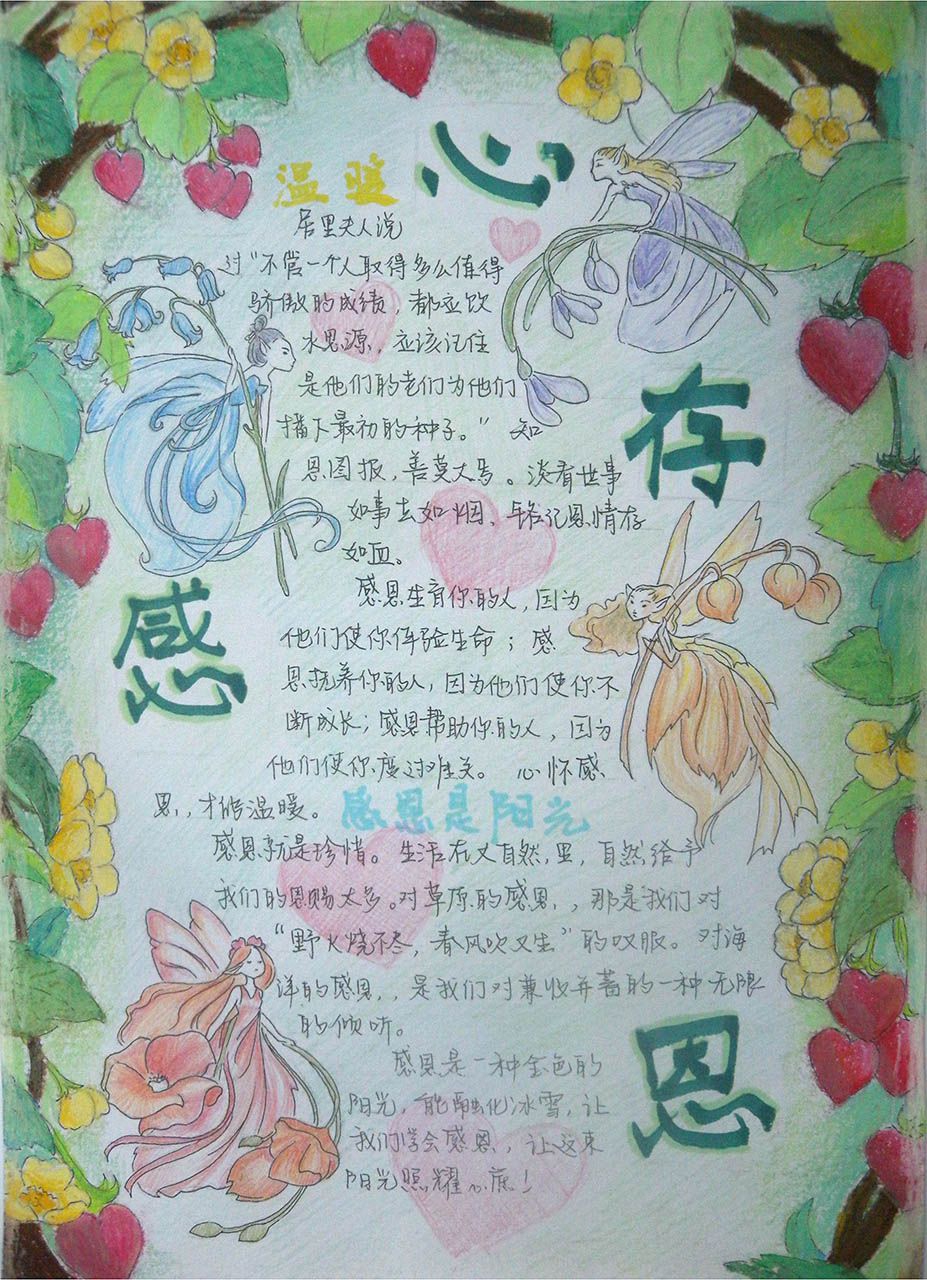 心
存
感
恩
温暖
居里夫人说
过"不管一个人取得多么值得
骄傲的成绩,都应饮
水思源,应该记住
是他们的老们为他们
播下最初的种子。" 知
恩图报,善莫大焉。淡看世事
如事去如烟、铭记恩情存
如血。
感恩生育你的人,因为
他们使你体验生命;感
恩抚养你的人,因为他们使你不
断成长;感恩帮助你的人,因为
他们使你度过难关。 心怀感
恩,才能温暖。
感恩是阳光
感恩就是珍惜。生活在大自然里,自然给予
我们的恩赐太多。对草原的感恩,那是我们对
"野火烧不尽,春风吹又生"的叹服。对海
洋的感恩,是我们对兼收并蓄的一种无限
的倾听。
感恩是一种金色的
阳光,能融化冰雪,让
我们学会感恩,让这束
阳光照耀心底!